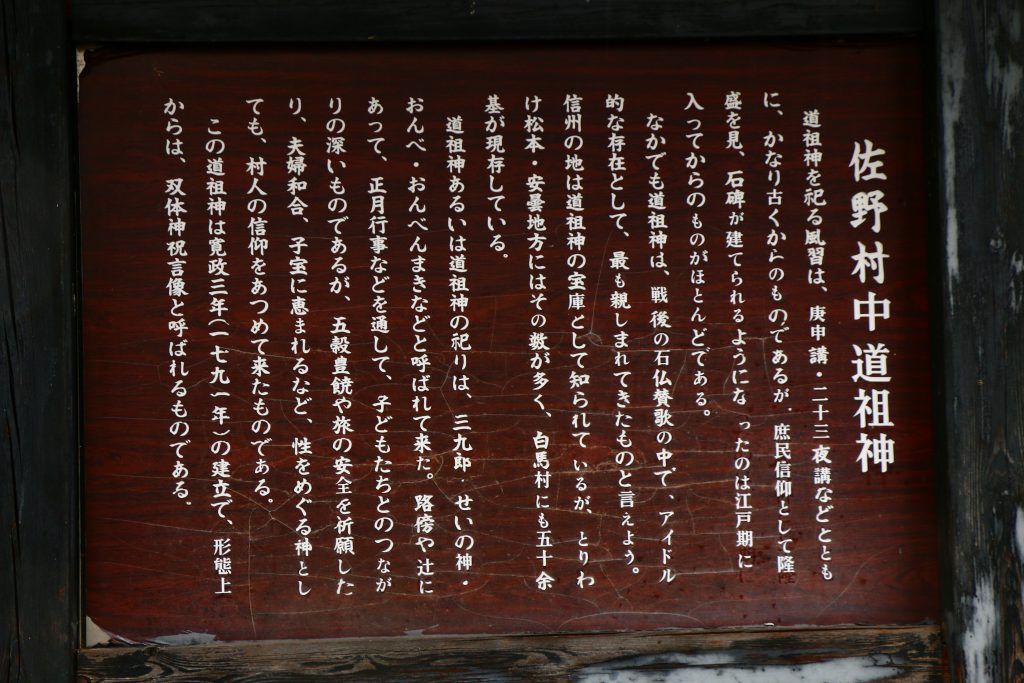 佐野村中道祖神
道祖神を祀る風習は、庚申講・二十三夜講などととも
に、かなり古くからのものであるが、庶民信仰として隆
盛を見、石碑が建てられるようになったのは江戸期に
入ってからのものがほとんどである。
なかでも道祖神は、戦後の石仏賛歌の中で、アイドル
的な存在として、最も親しまれてきたものと言えよう。
信州の地は道祖神の宝庫として知られているが、とりわ
け松本・安曇地方にはその数が多く、白馬村にも五十余
基が現存している。
道祖神あるいは道祖神の祀りは、三九郎・せいの神・
おんべ・おんべんまきなどと呼ばれて来た。路傍や辻に
あって、正月行事などを通して、子どもたちとのつなが
りの深いものであるが、五穀豊饒や旅の安全を祈願した
り、夫婦和合、子宝に恵まれるなど、性をめぐる神とし
ても、村人の信仰をあつめて来たものである。
この道祖神は寛政三年(一七九一年)の建立で、形態上
からは、双体神祝言像と呼ばれるものである。